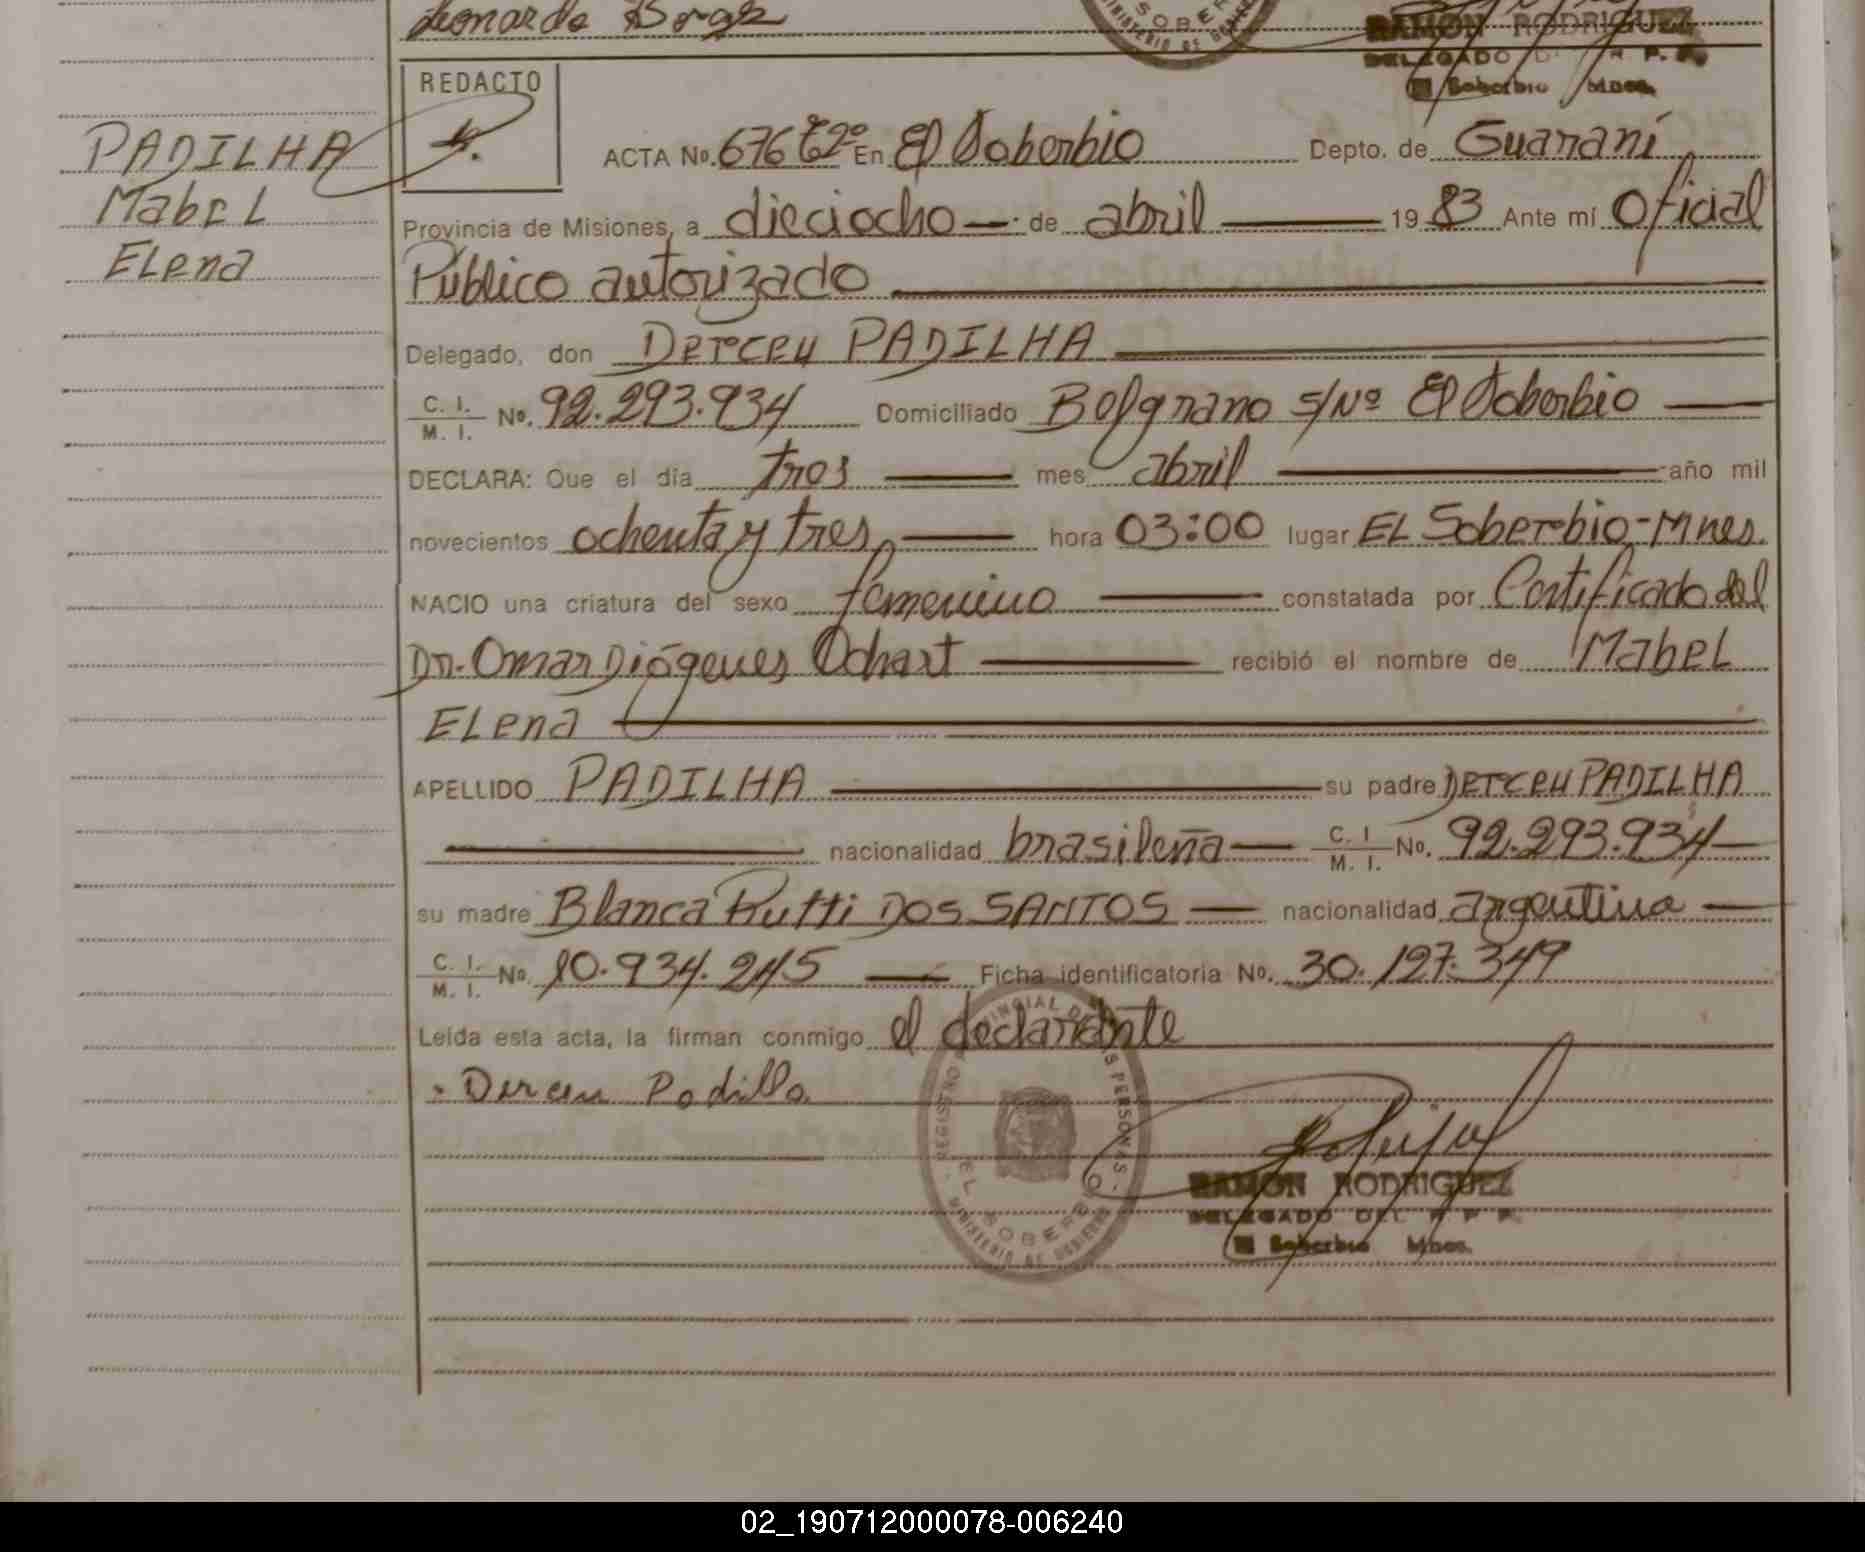 Leonardo Borge
RAMON RODRIGUEZ
DELEGADO D R. P. P.
El Soberbio Mnes.
SOBER
MINISTERIO DE GOBIERNO
REDACTO
PADILHA
Mabel
Elena
ACTA No. 676 Tº2º En El Soberbio Depto. de Guaraní
Provincia de Misiones, a dieciocho de abril 1983 Ante mí Oficial
Público autorizado
Delegado, don Derceu PADILHA
C. I. / M. I. No. 92.293.934 Domiciliado Belgrano s/Nº El Soberbio
DECLARA: Que el día tres mes abril año mil
novecientos ochenta y tres hora 03:00 lugar EL Soberbio-Mnes.
NACIO una criatura del sexo femenino constatada por Certificado del
Dr. Omar Diógenes Ochart recibió el nombre de Mabel
Elena
APELLIDO PADILHA su padre Derceu PADILHA
nacionalidad brasileña C. I. / M. I. No. 92.293.934
su madre Blanca Rutti DOS SANTOS nacionalidad argentina
C. I. / M. I. No. 10.934.245 Ficha identificatoria No. 30.127.349
Leída esta acta, la firman conmigo el declarante
Derceu Padilla
REGISTRO PROVINCIAL DE LAS PERSONAS
EL SOBERBIO
MINISTERIO DE GOBIERNO
RAMON RODRIGUEZ
DELEGADO DEL R. P. P.
El Soberbio Mnes.
02_190712000078-006240